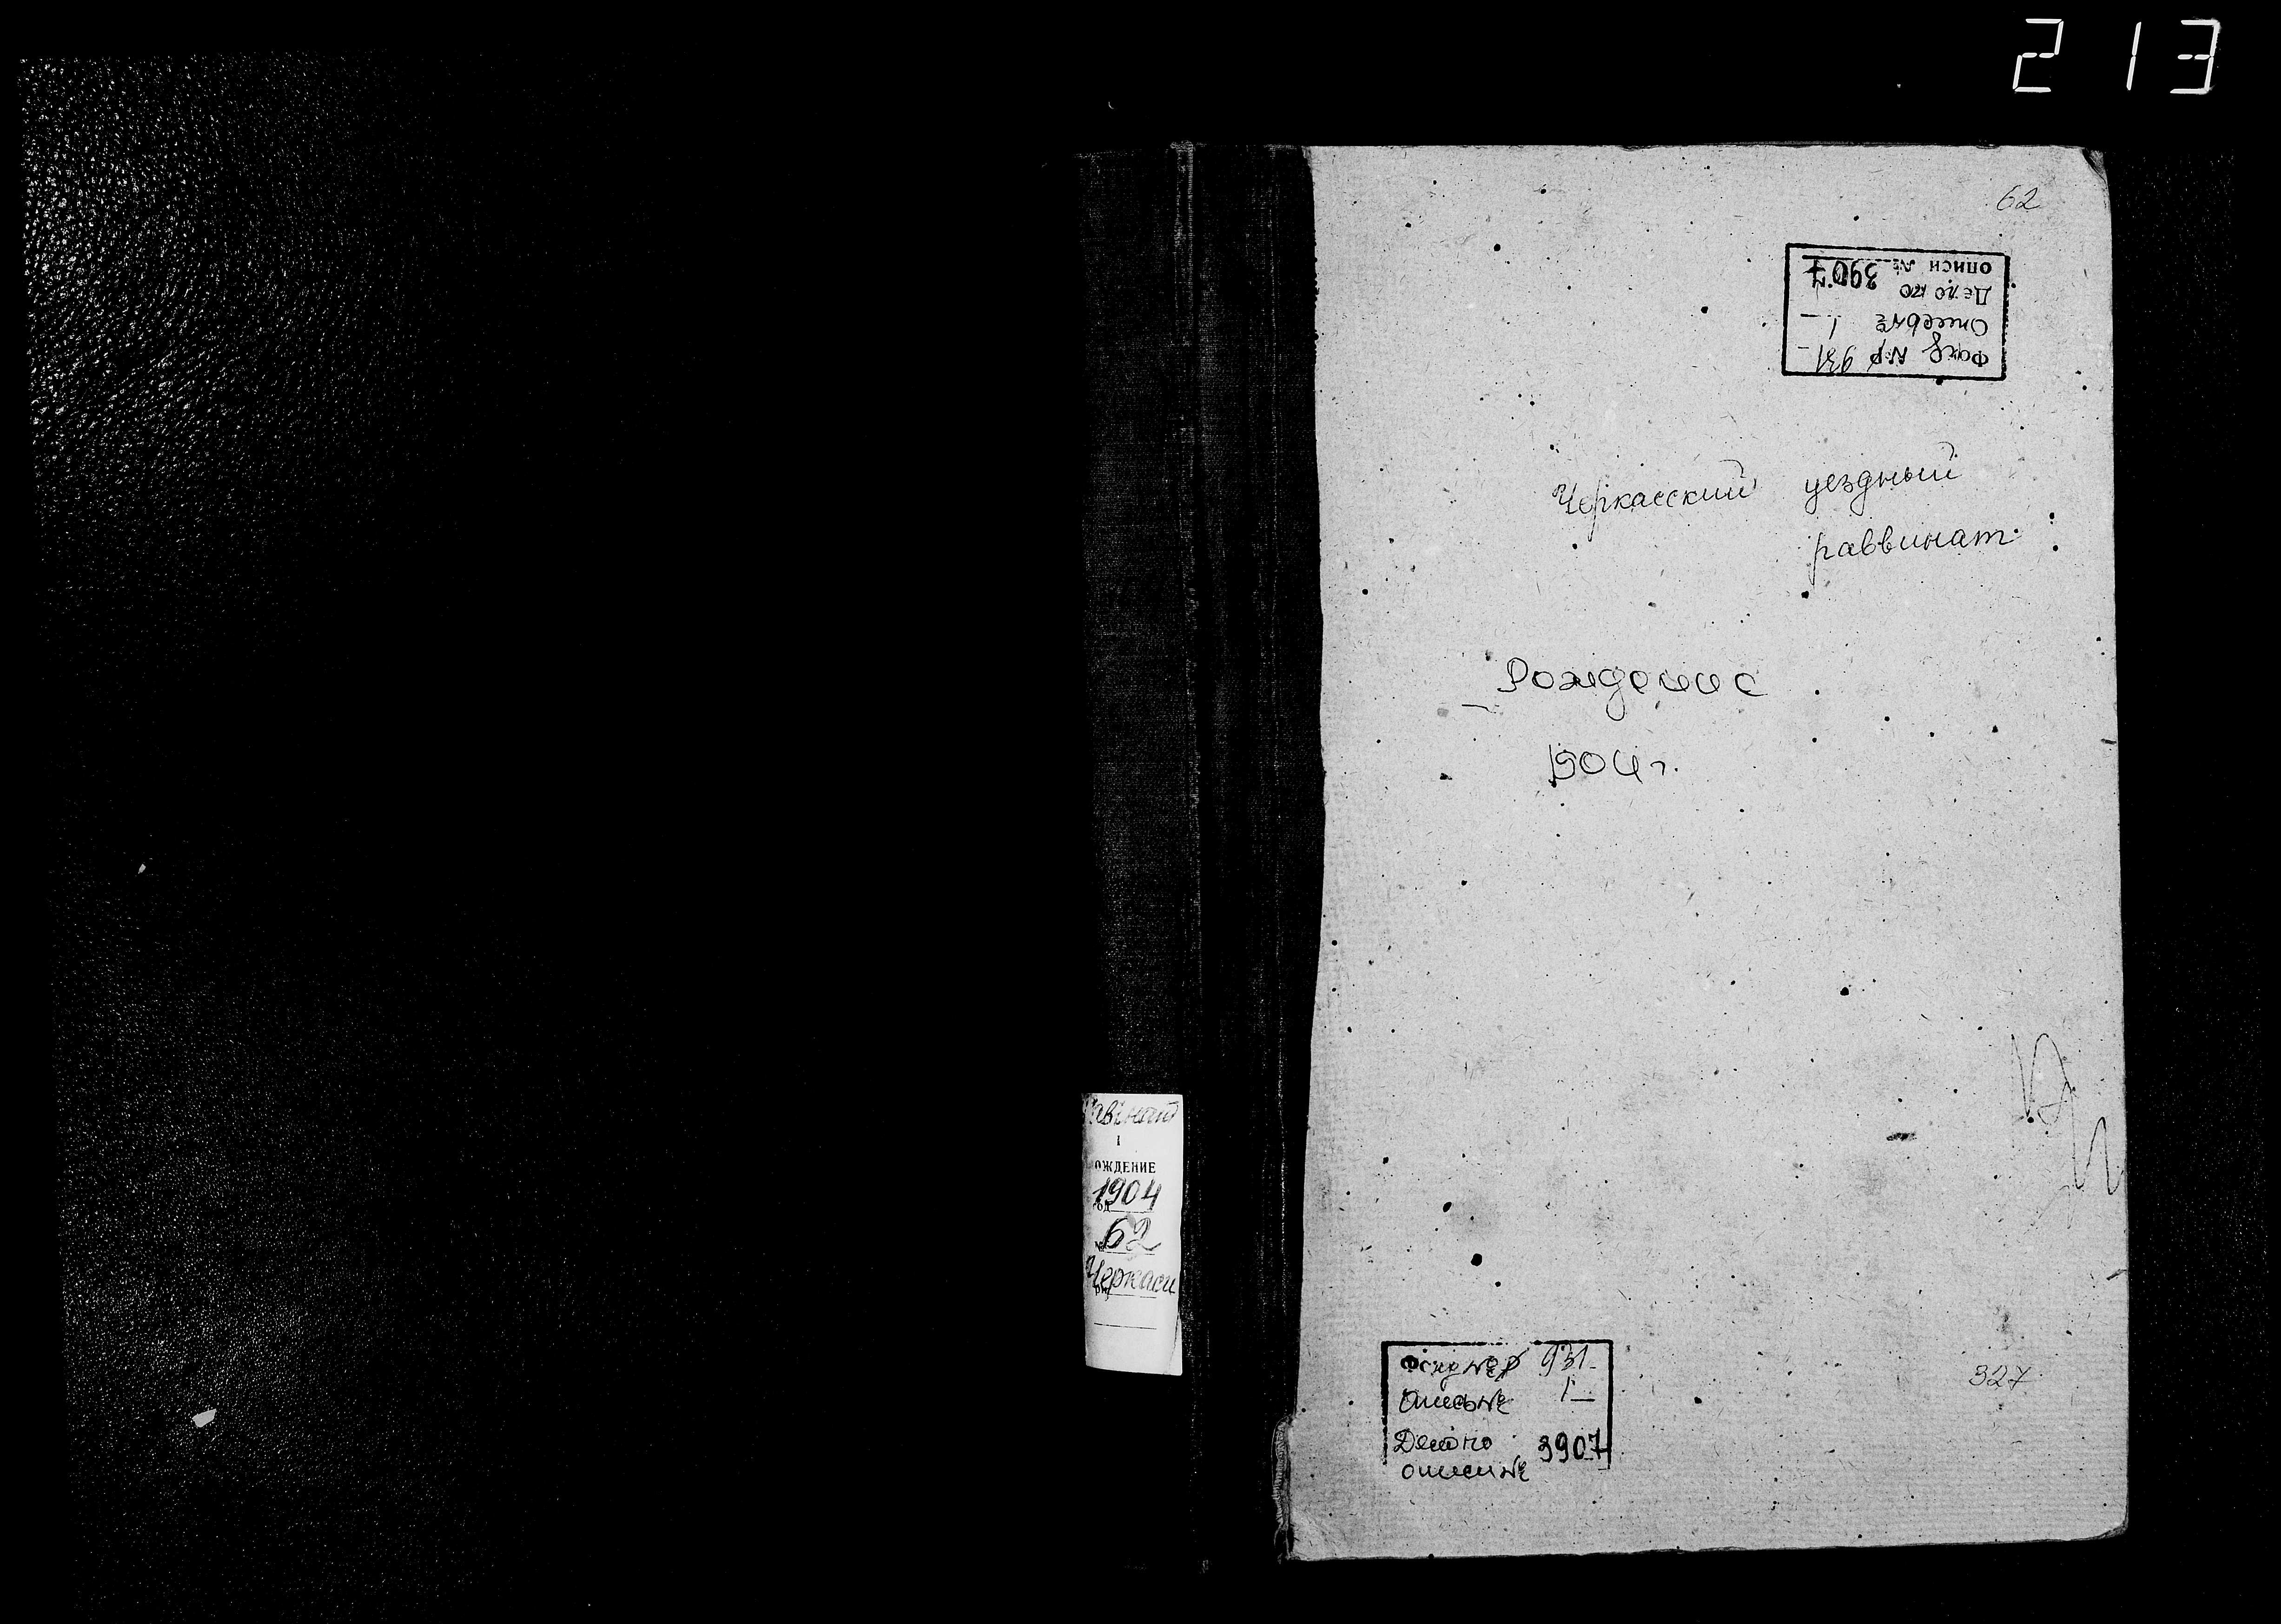 213
62
Фонд № р 931
Опись № 1
Дело по 3907
описи №
Черкасский уездный
раввинат
Рождение
1904 г.
1
ОЖДЕНИЕ
1904
62
Черкаси
Фонд № р 931
Опись № 1
Дело по 3907
описи №
327